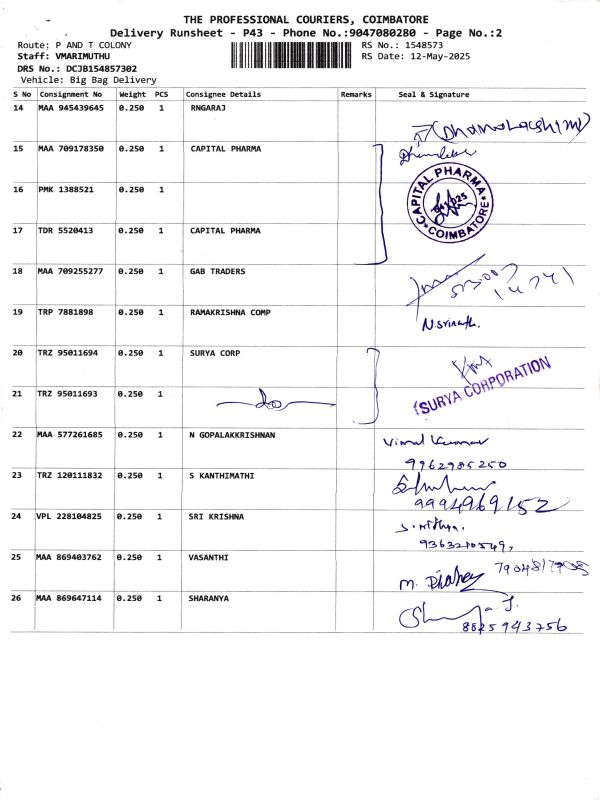 THE PROFESSIONAL COURIERS, COIMBATORE
Delivery Runsheet - P43 - Phone No.:9047080280 - Page No.:2
Route: P AND T COLONY RS No.: 1548573
Staff: VMARIMUTHU RS Date: 12-May-2025
DRS No.: DCJB154857302
Vehicle: Big Bag Delivery
S No Consignment No Weight PCS Consignee Details Remarks Seal & Signature
14 MAA 945439645 0.250 1 RNGARAJ
(Dhanalacshimi)
15 MAA 709178350 0.250 1 CAPITAL PHARMA
16 PMK 1388521 0.250 1
CAPITAL PHARMA
COIMBATORE
17 TDR 5520413 0.250 1 CAPITAL PHARMA
18 MAA 709255277 0.250 1 GAB TRADERS
19 TRP 7881898 0.250 1 RAMAKRISHNA COMP
N.Srinath.
20 TRZ 95011694 0.250 1 SURYA CORP
SURYA CORPORATION
21 TRZ 95011693 0.250 1
do
22 MAA 577261685 0.250 1 N GOPALAKKRISHNAN
Vimal Kumar
9962985250
23 TRZ 120111832 0.250 1 S KANTHIMATHI
9994969152
24 VPL 228104825 0.250 1 SRI KRISHNA
S. Nithya.
9363210549,
25 MAA 869403762 0.250 1 VASANTHI
26 MAA 869647114 0.250 1 SHARANYA
8825943756